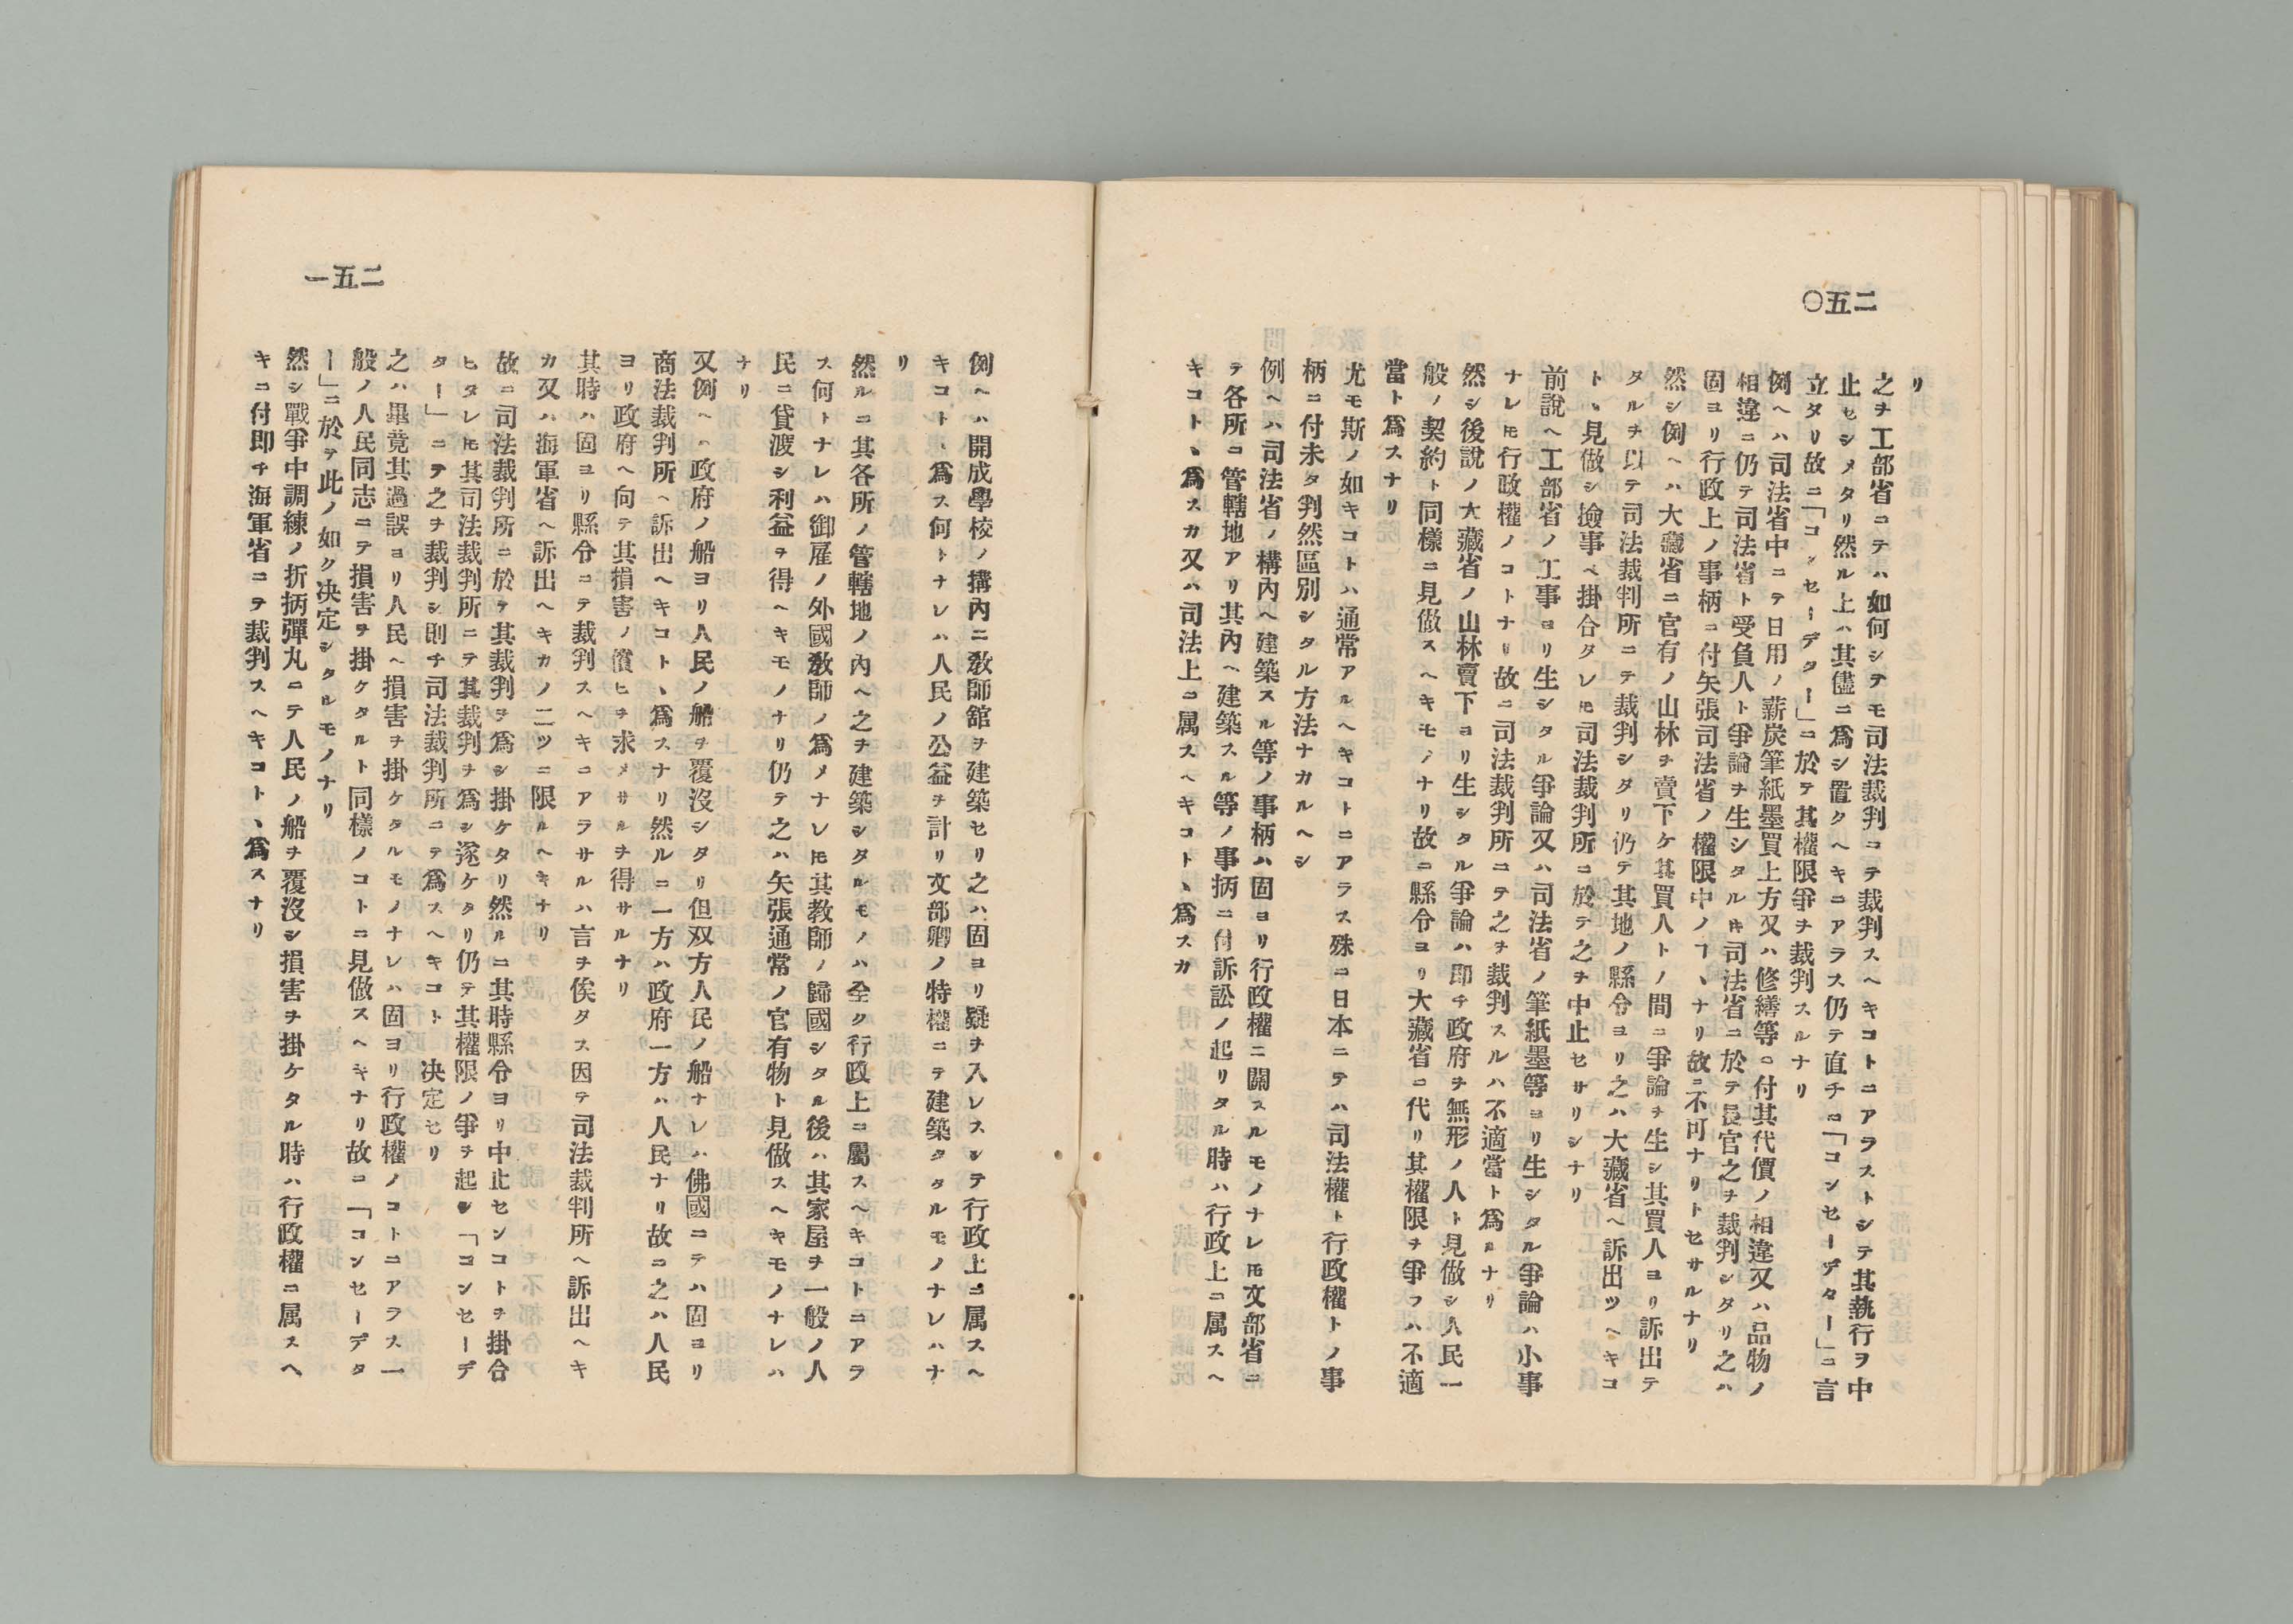 二五〇
リ
之ヲ工部省ニテハ如何シテモ司法裁判ニテ裁判スヘキコトニアラストシテ其執行ヲ中
止セシメタリ然ル上ハ其儘ニ爲シ置クヘキニアラス仍テ直チニ「コンセーデター」ニ言
立タリ故ニ「コンセーデター」ニ於テ其權限爭ヲ裁判スルナリ
例ヘハ司法省中ニテ日用ノ薪炭筆紙墨買上方又ハ修繕等ニ付其代價ノ相違又ハ品物ノ
相違ニ仍テ司法省ト受負人ト爭論ヲ生シタルキ司法省ニ於テ長官之ヲ裁判シタリ之ハ
固ヨリ行政上ノ事柄ニ付矢張司法省ノ權限中ノヿヽナリ故ニ不可ナリトセサルナリ
然シ例ヘハ大藏省ニ官有ノ山林ヲ賣下ケ其買人トノ間ニ爭論ヲ生シ其買人ヨリ訴出テ
タルヲ以テ司法裁判所ニテ裁判シタリ仍テ其地ノ縣令ヨリ之ハ大藏省ヘ訴出ツヘキコ
トヽ見做シ撿事ヘ掛合タレ𪜈司法裁判所ニ於テ之ヲ中止セサリシナリ
前說ヘ工部省ノ工事ヨリ生シタル爭論又ハ司法省ノ筆紙墨等ヨリ生シタル爭論ハ小事
ナレ𪜈行政權ノコトナリ故ニ司法裁判所ニテ之ヲ裁判スルハ不適當ト爲ルナリ
然シ後說ノ大藏省ノ山林賣下ヨリ生シタル爭論ハ即チ政府ヲ無形ノ人ト見做シ人民一
般ノ契約ト同樣ニ見做スヘキモノナリ故ニ縣令ヨリ大藏省ニ代リ其權限ヲ爭フハ不適
當ト爲スナリ
尤モ斯ノ如キコトハ通常アルヘキコトニアラス殊ニ日本ニテハ司法權ト行政權トノ事
柄ニ付未タ判然區別シタル方法ナカルヘシ
例ヘハ司法省ノ構內ヘ建築スル等ノ事柄ハ固ヨリ行政權ニ關スルモノナレ𪜈文部省ニ
テ各所ニ管轄地アリ其內ヘ建築スル等ノ事柄ニ付訴訟ノ起リタル時ハ行政上ニ属スヘ
キコトヽ爲スカ又ハ司法上ニ属スヘキコトヽ爲スカ
二五一
例ヘハ開成學校ノ搆內ニ敎師舘ヲ建築セリ之ハ固ヨリ疑ヲ入レスシテ行政上ニ属スヘ
キコトヽ爲ス何トナレハ人民ノ公益ヲ計リ文部卿ノ特權ニテ建築タルモノナレハナ
リ
然ルニ其各所ノ管轄地ノ內ヘ之ヲ建築シタルモノハ全ク行政上ニ屬スヘキコトニアラ
ス何トナレハ御雇ノ外國敎師ノ爲メナレ𪜈其教師ノ歸國シタル後ハ其家屋ヲ一般ノ人
民ニ貸渡シ利益ヲ得ヘキモノナリ仍テ之ハ矢張通常ノ官有物ト見做スヘキモノナレハ
ナリ
又例ヘハ政府ノ船ヨリ人民ノ船ヲ覆沒シタリ但双方人民ノ船ナレハ佛國ニテハ固ヨリ
商法裁判所ヘ訴出ヘキコトヽ爲スナリ然ルニ一方ハ政府一方ハ人民ナリ故ニ之ハ人民
ヨリ政府ヘ向テ其損害ノ償ヒヲ求メサルヲ得サルナリ
其時ハ固ヨリ縣令ニテ裁判スヘキニアラサルハ言ヲ俟タス因テ司法裁判所ヘ訴出ヘキ
カ又ハ海軍省ヘ訴出ヘキカノ二ツニ限ルヘキナリ
故ニ司法裁判所ニ於テ其裁判ヲ爲シ掛ケタリ然ルニ其時縣令ヨリ中止センコトヲ掛合
ヒタレ𪜈其司法裁判所ニテ其裁判ヲ爲シ遂ケタリ仍テ其權限ノ爭ヲ起シ「コンセーデ
ター」ニテ之ヲ裁判シ則チ司法裁判所ニテ爲スヘキコト 決定セリ
之ハ畢竟其過誤ヨリ人民ヘ損害ヲ掛ケタルモノナレハ固ヨリ行政權ノコトニアラス一
般ノ人民同志ニテ損害ヲ掛ケタルト同樣ノコトニ見做スヘキナリ故ニ「コンセーデタ
ー」ニ於テ此ノ如ク決定シタルモノナリ
然シ戰爭中調練ノ折柄彈丸ニテ人民ノ船ヲ覆沒シ損害ヲ掛ケタル時ハ行政權ニ属スヘ
キニ付即チ海軍省ニテ裁判スヘキコトヽ爲スナリ